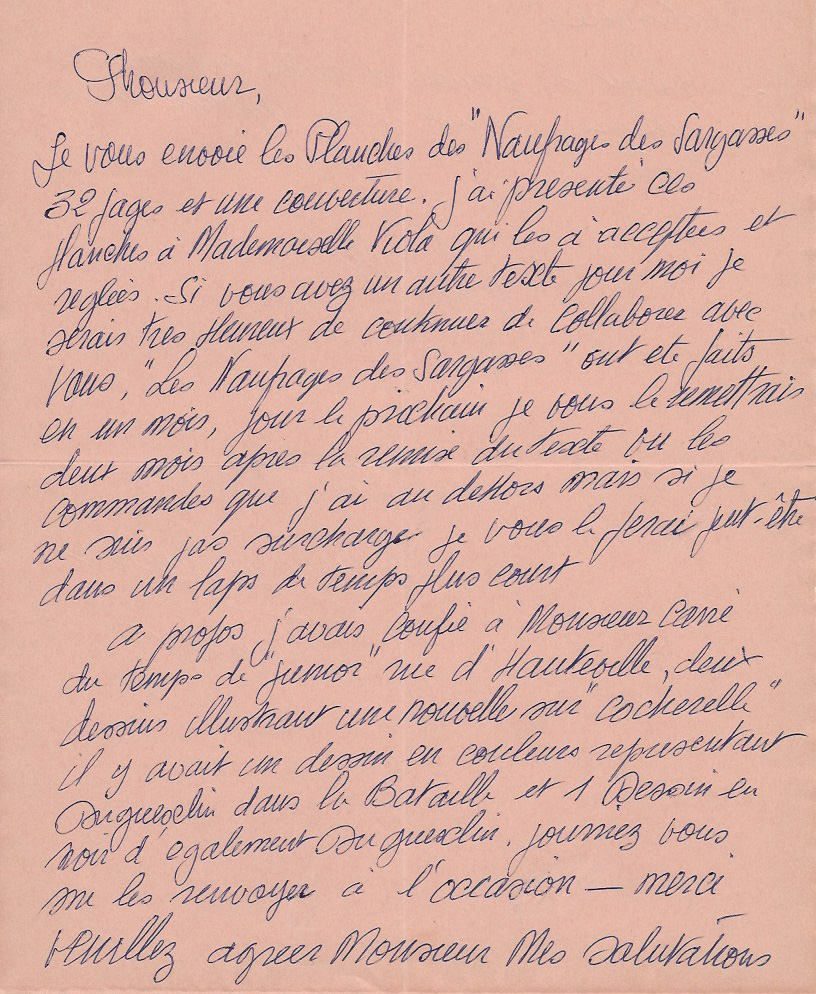 Monsieur,
Je vous envoie les Planches des "Naufrages des Sargasses"
32 pages et une couverture. j'ai presenté ces
planches à Mademoiselle Viola qui les a acceptées et
reglées. Si vous avez un autre texte pour moi je
serais tres Heureux de continuer de collaborer avec
vous, "Les Naufrages des Sargasses" ont ete faits
en un mois, pour le prochain je vous le remettrais
deux mois apres la remise du texte vu les
commandes que j'ai au dehors mais si je
ne suis pas surcharge je vous le ferai peut-être
dans un laps de temps plus court
a propos j'avais confié à Monsieur Carré
du temps de "junior" rue d'Hauteville, deux
dessins illustrant une nouvelle sur "Cocherelle"
il y avait un dessin en couleurs representant
Duguesclin dans la Bataille et 1 Dessin en
noir d'egalement Duguesclin. pourriez vous
me les renvoyer à l'occasion — merci
Veuillez agreer Monsieur Mes salutations